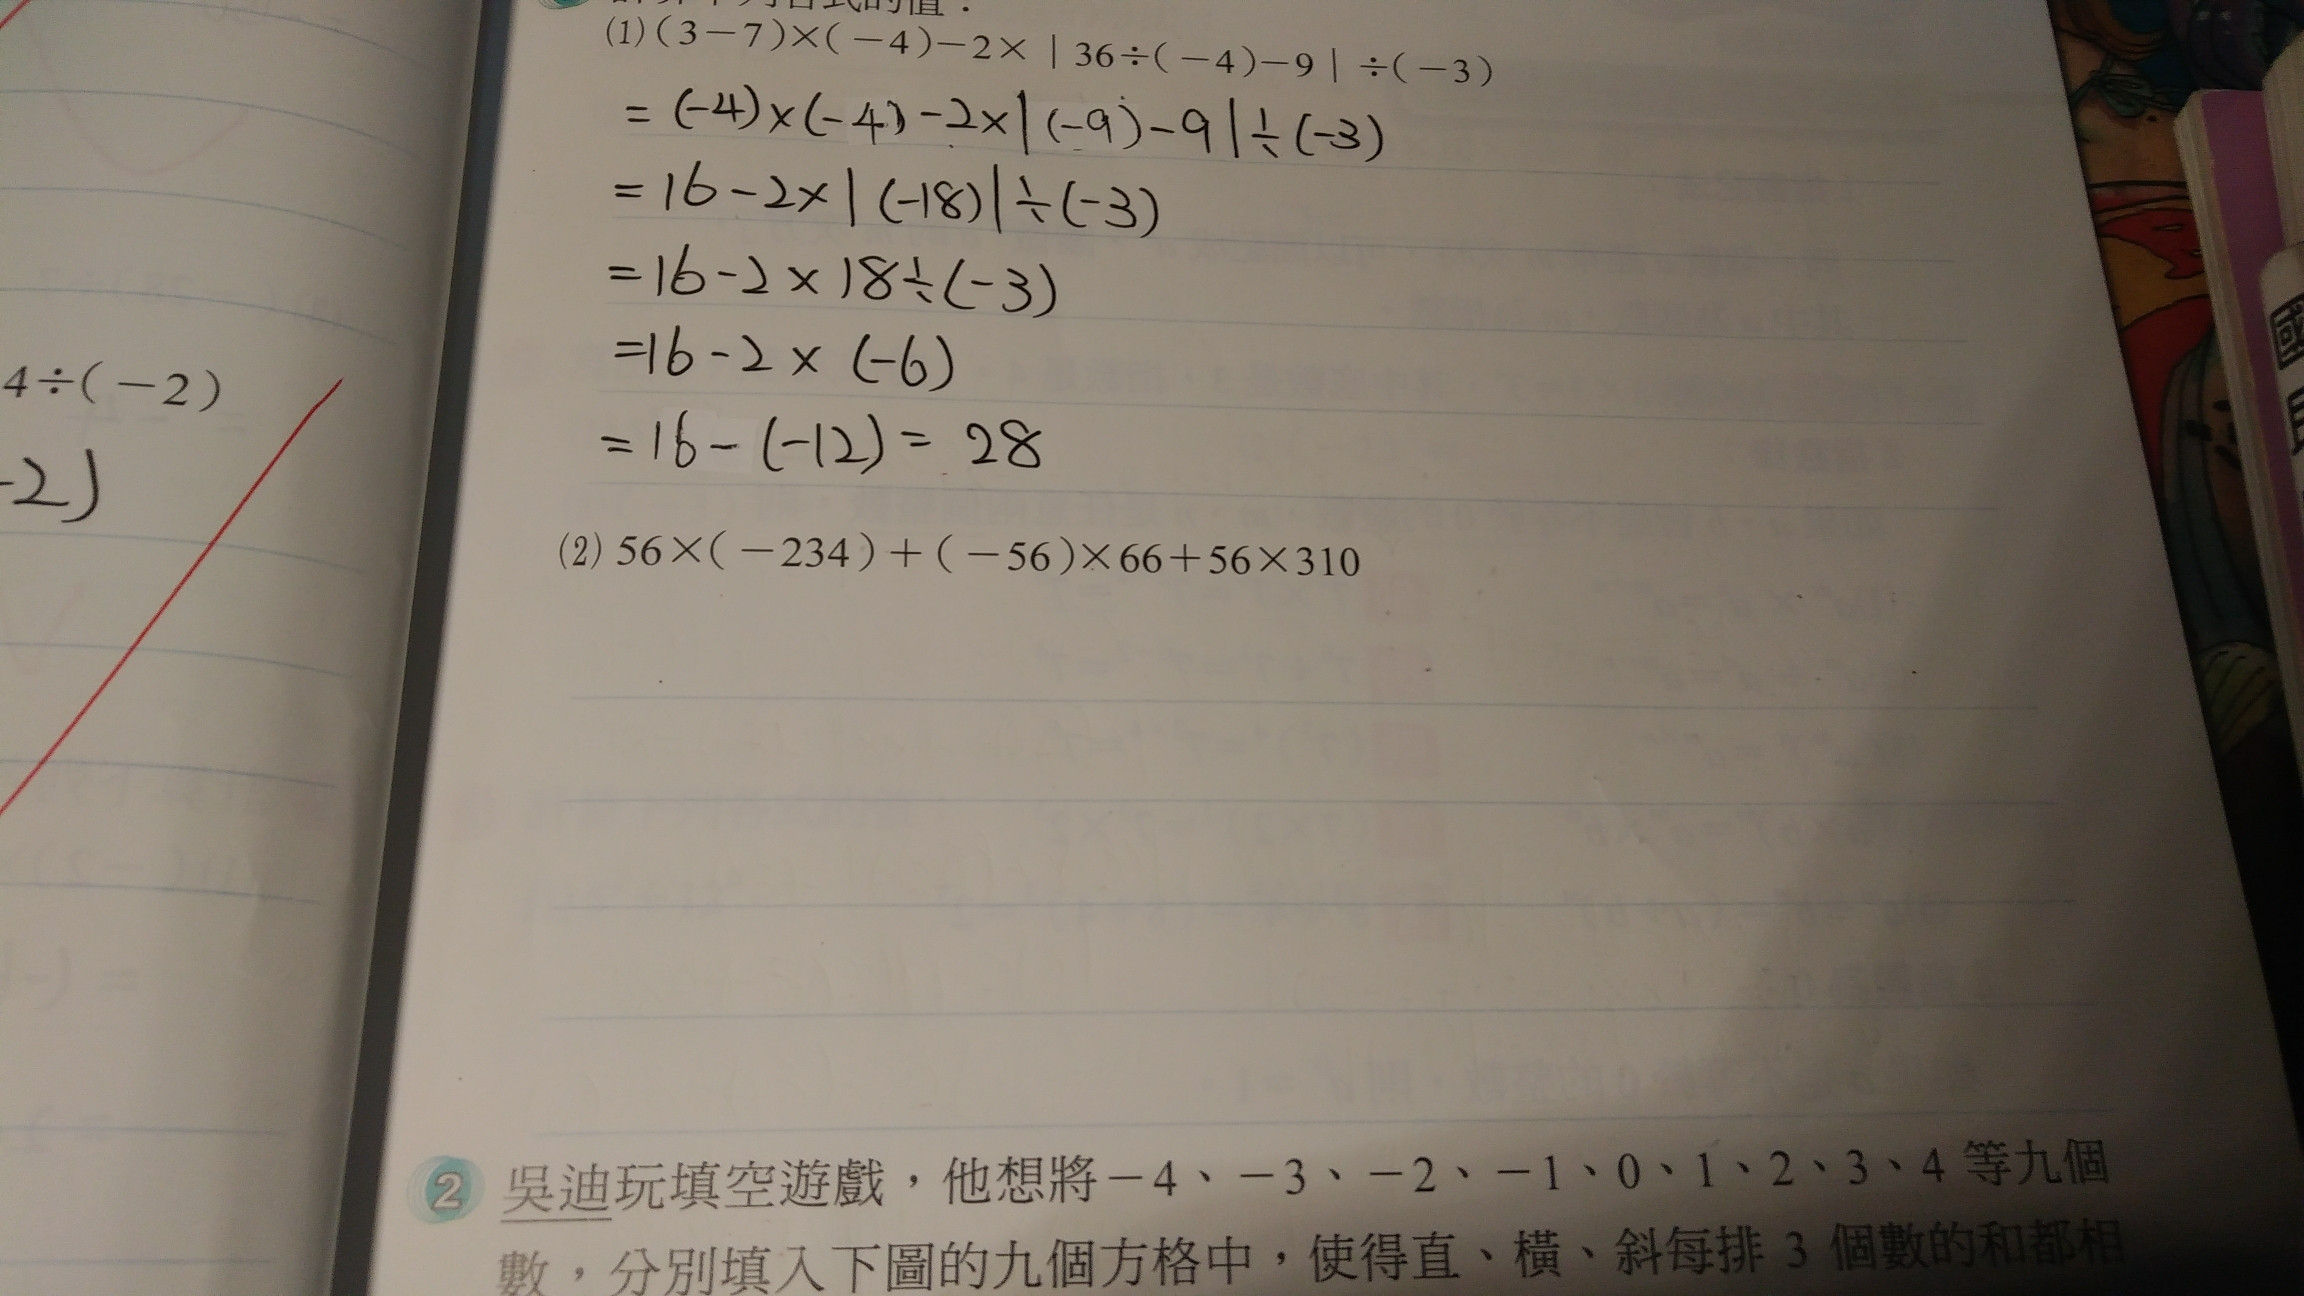 (1)(3−7)×(−4)−2×|36÷(−4)−9|÷(−3)
=(-4)×(-4)-2×|(-9)-9|÷(-3)
=16-2×|(-18)|÷(-3)
=16-2×18÷(-3)
=16-2×(-6)
=16-(-12)=28
4÷(−2)
-2)
(2)56×(−234)+(−56)×66+56×310
2 吳迪玩填空遊戲，他想將−4、−3、−2、−1、0、1、2、3、4等九個
數，分別填入下圖的九個方格中，使得直、橫、斜每排3個數的和都相
國